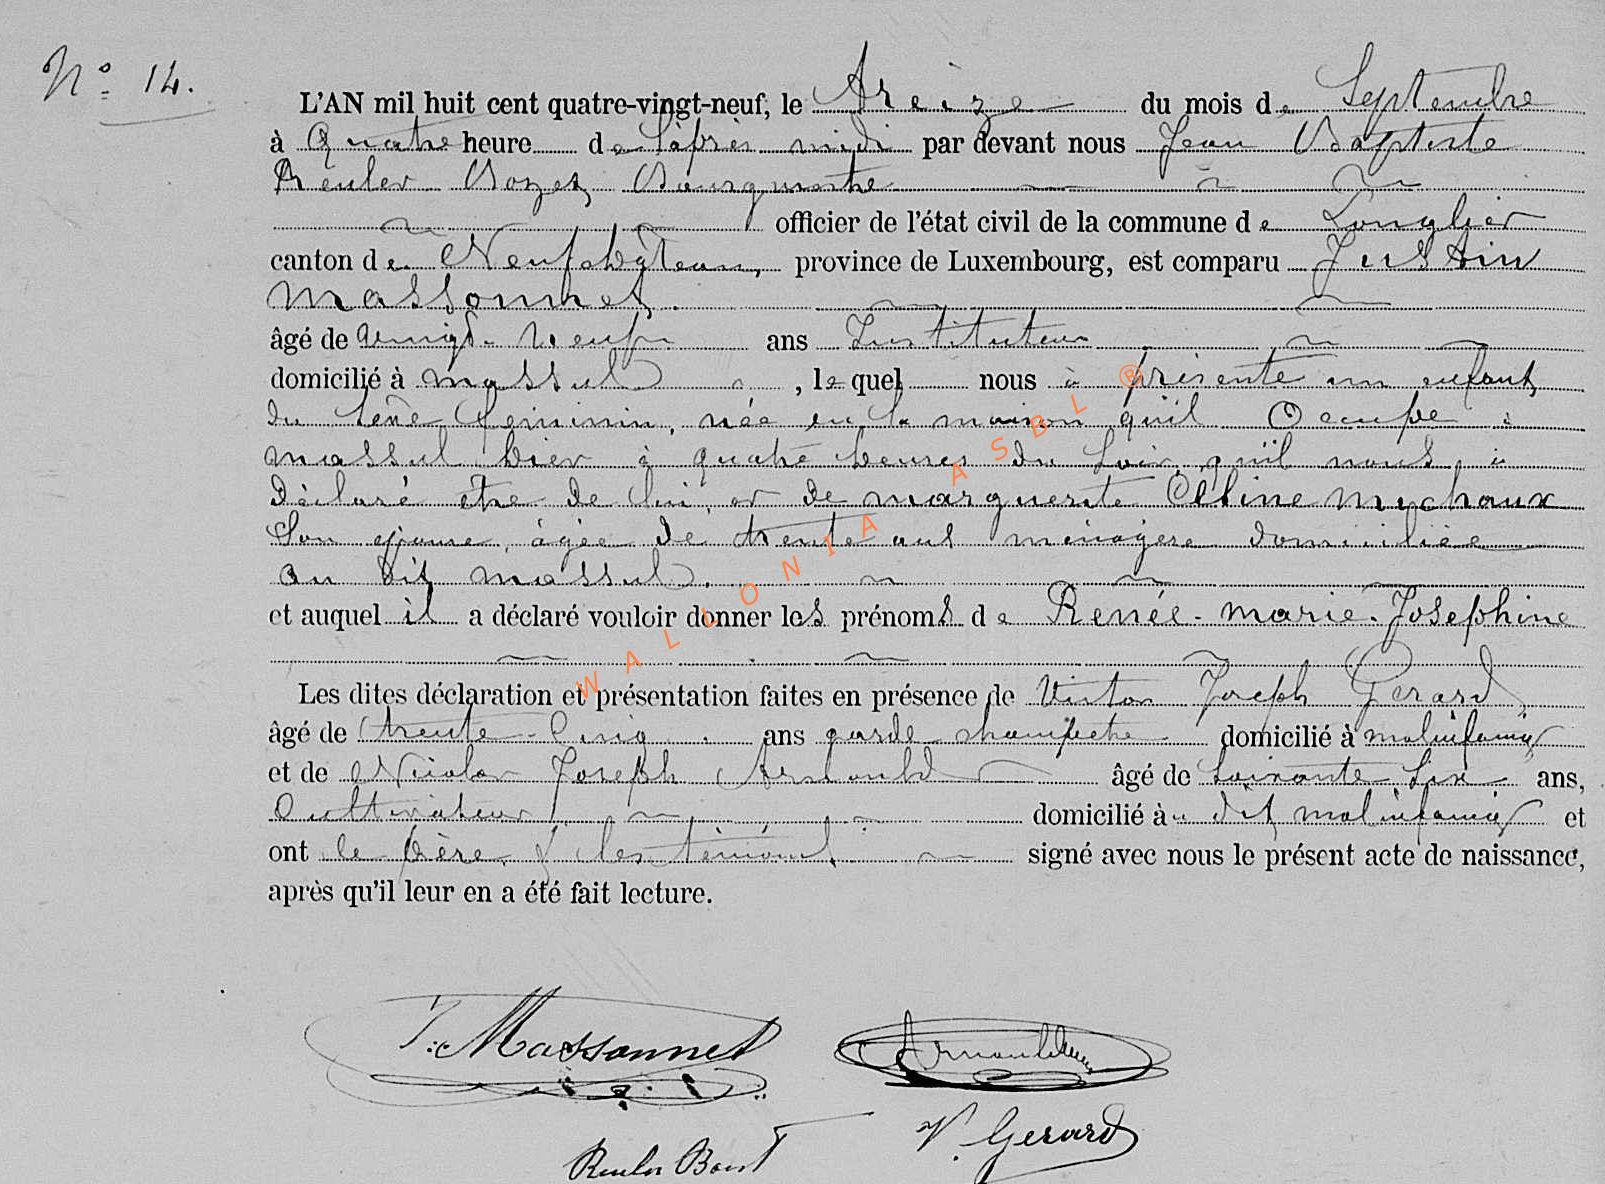 N° 14.
L'AN mil huit cent quatre-vingt-neuf, le Treize du mois de Septembre
à Quatre heure de l'après midi par devant nous Jean Baptiste
Reuler Bozet Bourgmestre
officier de l'état civil de la commune de Longlier
canton de Neufchâteau, province de Luxembourg, est comparu Justin
Massonnet.
âgé de vingt-neuf ans Instituteur
domicilié à massul, lequel nous à présenté un enfant
du sexe féminin, née en la maison qu'il Occupe à
massul hier à quatre heures du soir, qu'il nous à
déclaré être de lui et de marguerite Céline Michaux
Son épouse, âgée de trente ans ménagère domiciliée
au dit massul.
et auquel il a déclaré vouloir donner les prénoms de Renée-marie-Josephine
Les dites déclaration et présentation faites en présence de Victor Joseph Gerard
âgé de trente-Cinq ans garde champêtre domicilié à molinfaing
et de Nicolas Joseph Arnould âgé de soixante six ans,
Cultivateur domicilié au dit molinfaing et
ont le père & les témoins signé avec nous le présent acte de naissance,
après qu'il leur en a été fait lecture.
J. Massonnet Arnould
V. Gerard
Reuler
WALLONIA ASBL ®